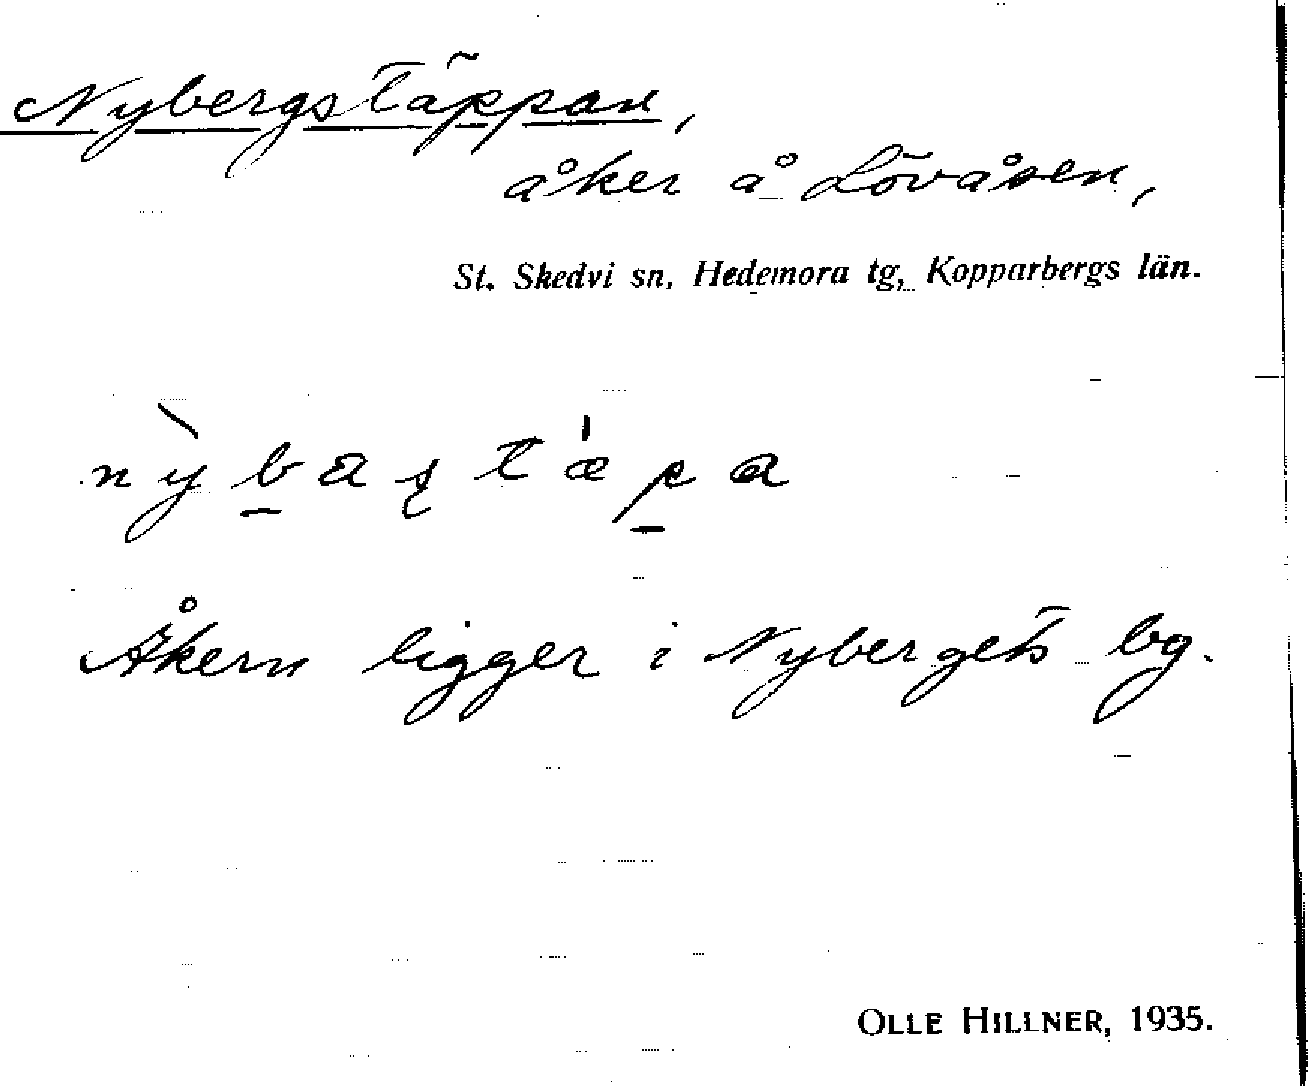 Nybergstäppan,
åker å Lövåsen,
St. Skedvi sn, Hedemora tg, Kopparbergs län.
Åkern ligger i Nybergets by.
OLLE HILLNER, 1935.